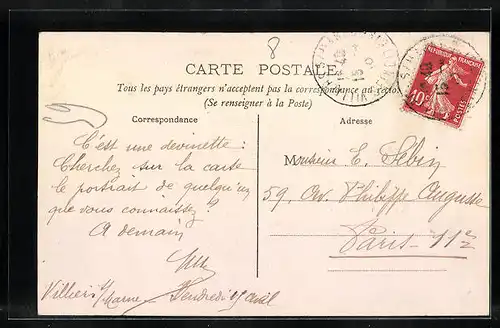 8
CARTE POSTALE
Tous les pays étrangers n'acceptent pas la correspondance au recto
(Se renseigner à la Poste)
Correspondance
C'est une devinette :
Cherchez sur la carte
le portrait de quelqu'un
que vous connaissez ?
A demain
Villiers s/ Marne Vendredi 15 avril
Adresse
Monsieur E. Sébin
59, Av. Philippe Auguste
Paris - 11e
REPUBLIQUE FRANÇAISE
10c
POSTES